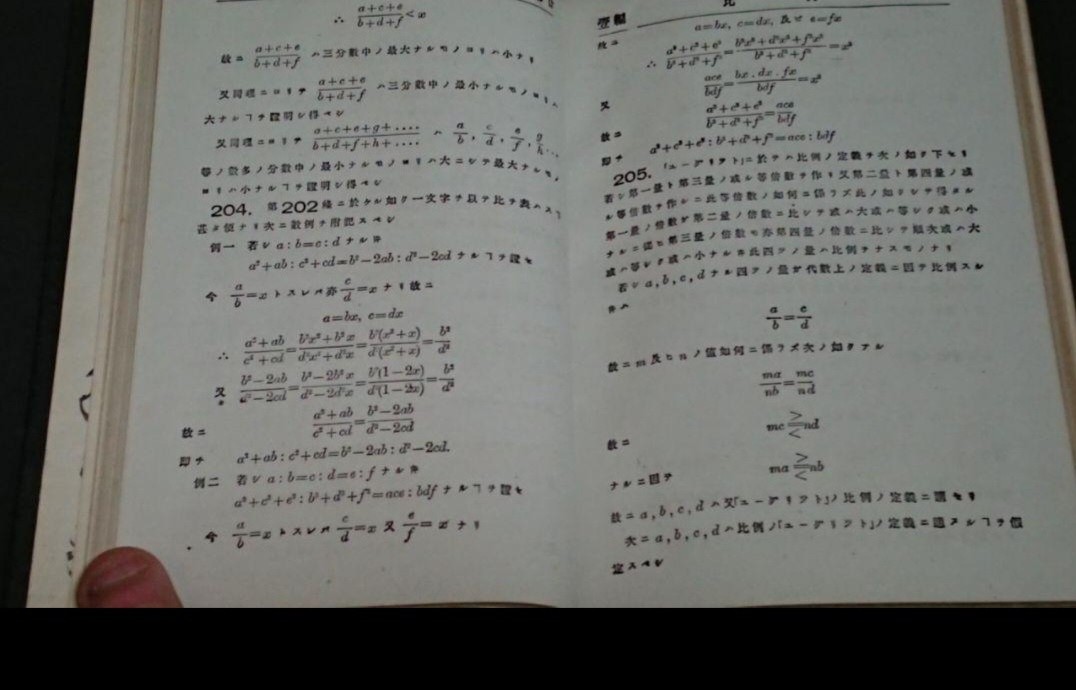 ∴ (a+c+e)/(b+d+f)<x
故ニ (a+c+e)/(b+d+f) ハ三分數中ノ最大ナルモノヨリハ小ナリ
又同理ニヨリテ (a+c+e)/(b+d+f) ハ三分數中ノ最小ナルモノヨリハ
大ナルヿヲ證明シ得ベシ
又同理ニヨリテ (a+c+e+g+....)/(b+d+f+h+....) ハ a/b, c/d, e/f, g/h...
等ノ數多ノ分數中ノ最小ナルモノヨリハ大ニシテ最大ナルモノ
ヨリハ小ナルヿヲ證明シ得ベシ
204. 第202條ニ於ケル如ク一文字ヲ以テ比ヲ表ハスヿ
甚タ便ナリ次ニ數例ヲ附記スベシ
例一 若シ a:b=c:d ナル時
a²+ab:c²+cd=b²−2ab:d²−2cd ナルヿヲ證セ
今 a/b=x トスレバ亦 c/d=x ナリ故ニ
a=bx, c=dx
∴ (a²+ab)/(c²+cd)=(b²x²+b²x)/(d²x²+d²x)=b²(x²+x)/d²(x²+x)=b²/d²
又 (b²−2ab)/(d²−2cd)=(b²−2b²x)/(d²−2d²x)=b²(1−2x)/d²(1−2x)=b²/d²
故ニ (a²+ab)/(c²+cd)=(b²−2ab)/(d²−2cd)
即チ a²+ab:c²+cd=b²−2ab:d²−2cd.
例二 若シ a:b=c:d=e:f ナル時
a³+c³+e³:b³+d³+f³=ace:bdf ナルヿヲ證セ
今 a/b=x トスレバ c/d=x 又 e/f=x ナリ
比
a=bx, c=dx, 及ヒ e=fx
故ニ
∴ (a³+c³+e³)/(b³+d³+f³)=(b³x³+d³x³+f³x³)/(b³+d³+f³)=x³
又 ace/bdf=(bx.dx.fx)/bdf=x³
故ニ (a³+c³+e³)/(b³+d³+f³)=ace/bdf
即チ a³+c³+e³:b³+d³+f³=ace:bdf
205. 「ユークリツト」ニ於テハ比例ノ定義ヲ次ノ如ク下セリ
若シ第一量ト第三量ノ或ル等倍數ヲ作リ又第二量ト第四量ノ或
ル等倍數ヲ作ルニ此等倍數ノ如何ニ係ラズ此ノ如クシテ得タル
第一量ノ倍數ガ第二量ノ倍數ニ比シテ或ハ大或ハ等シク或ハ小
ナルニ從ヒ第三量ノ倍數モ亦第四量ノ倍數ニ比シテ順次或ハ大
或ハ等シク或ハ小ナル時此四ツノ量ハ比例ヲナスモノナリ
若シ a, b, c, d ナル四ツノ量ガ代數上ノ定義ニ因テ比例スル
時ハ
a/b=c/d
故ニ m 及ヒ n ノ値如何ニ係ラズ次ノ如クナル
ma/nb=mc/nd
故ニ mc⋛nd
ナルニ因テ ma⋛nb
故ニ a, b, c, d ハ又「ユークリツト」ノ比例ノ定義ニ適セリ
次ニ a, b, c, d ハ比例ノ「ユークリツト」ノ定義ニ適スルヿヲ假
定スベシ